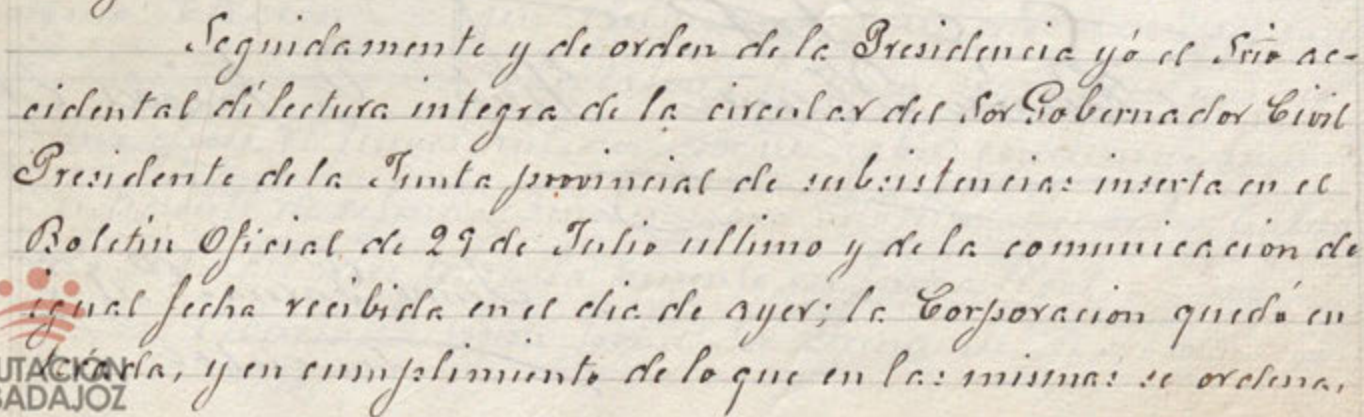 Seguidamente y de orden de la Presidencia yó el Srio ac-
cidental dí lectura integra de la circular del Sor Gobernador Civil
Presidente dela Junta provincial de subsistencias inserta en el
Boletin Oficial de 29 de Julio ultimo y de la comunicacion de
igual fecha recibida en el dia de ayer; la Corporacion quedó en
terada, y en cumplimiento de lo que en las mismas se ordena,
UTACIÓN
BADAJOZ